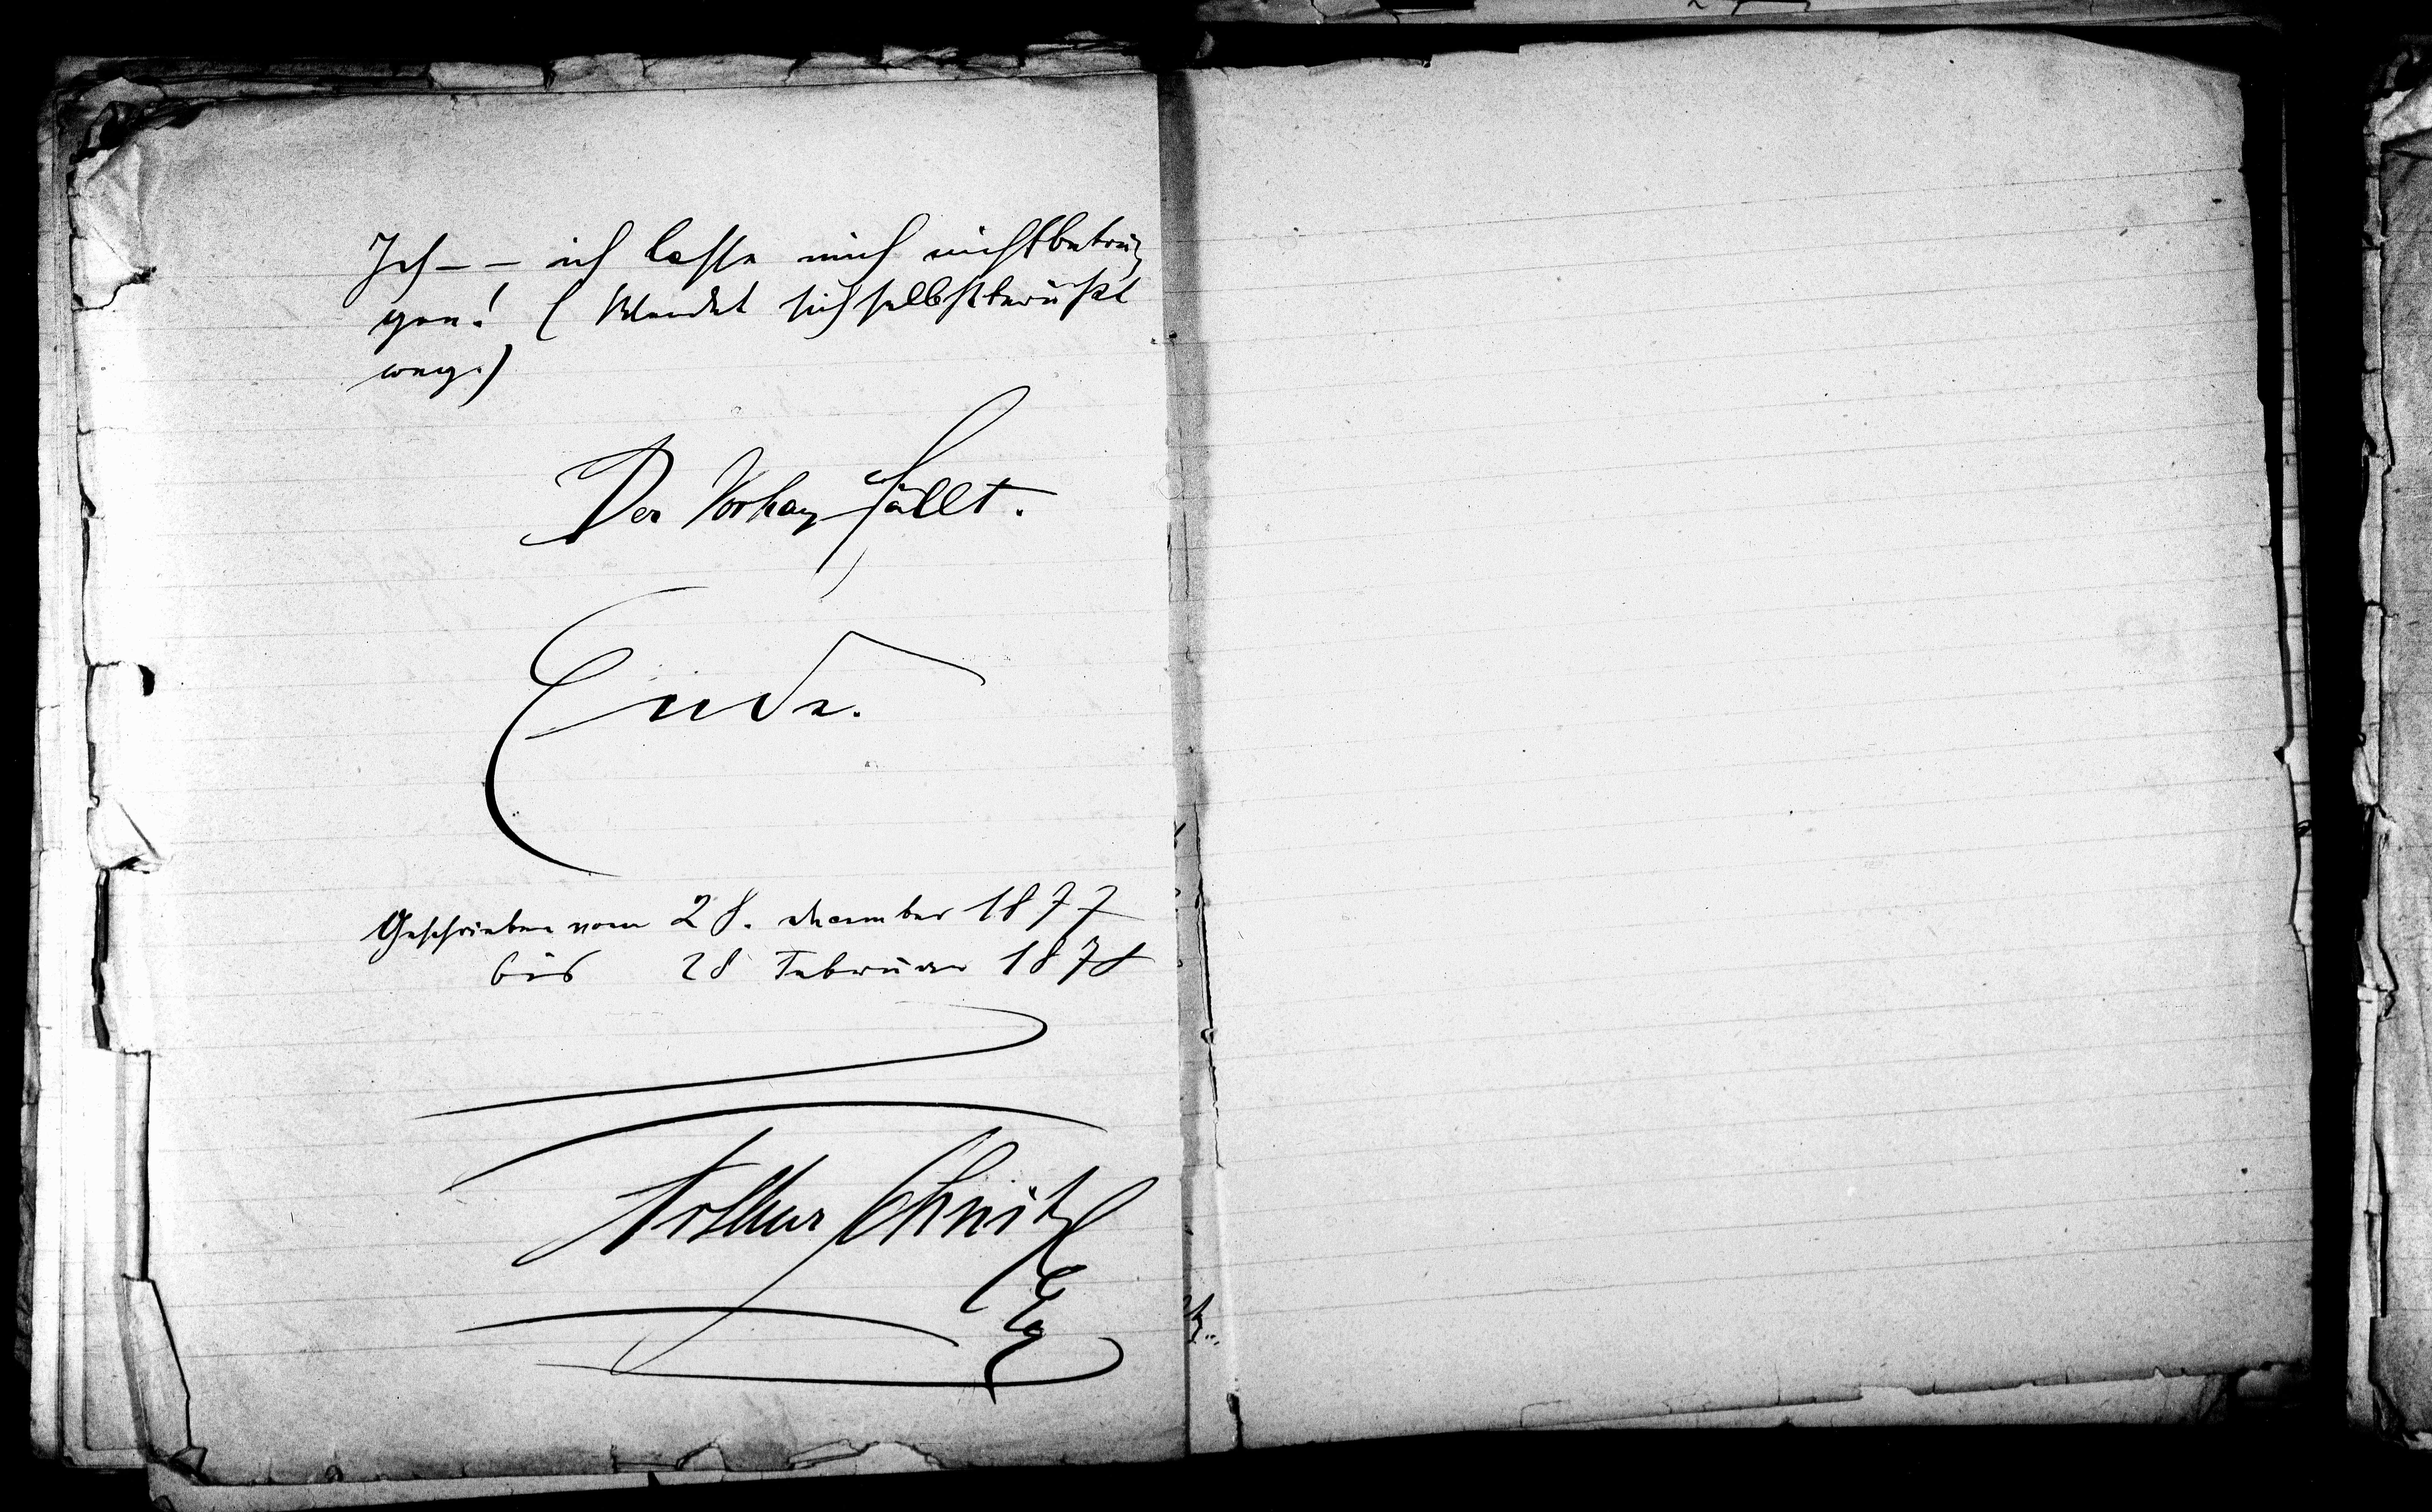 Ich – – ich lasse mich nicht betrü
gen! (Wendet sich selbstbewußt
weg.)
Der Vorhang fällt.
Ende.
Geschrieben vom 28. December 1877
bis 28 Februar 1878
Arthur Schnitz
ler